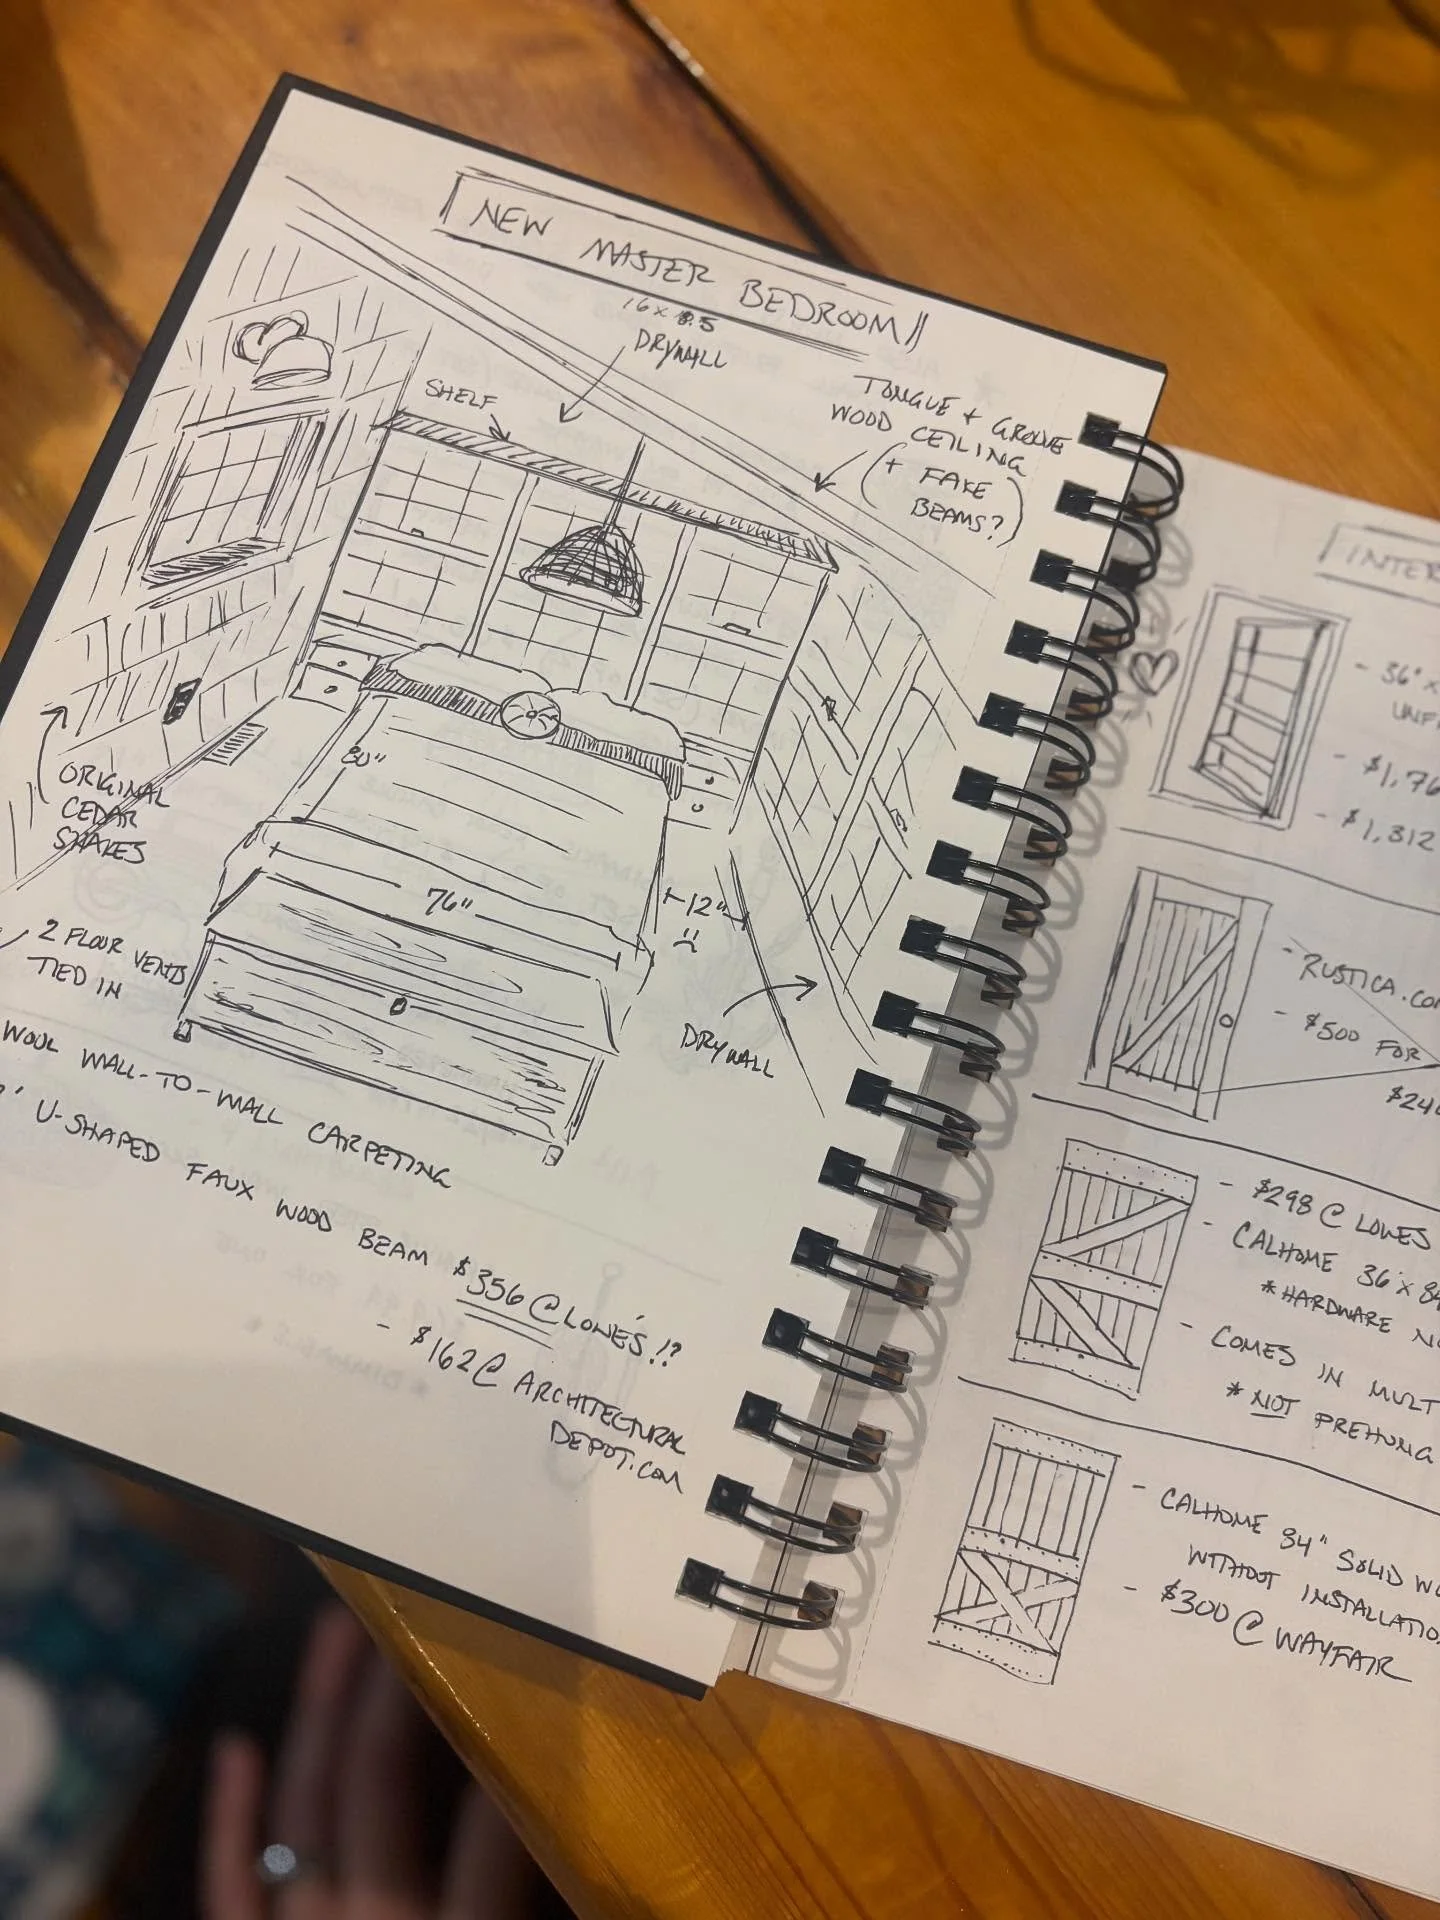 NEW MASTER BEDROOM
DRYWALL
SHELF
TONGUE + GROOVE
WOOD CEILING
(+ FAKE
BEAMS?)
80"
ORIGINAL
CEDAR
SHAKES
76"
12"
2 FLOOR VENTS
TIED IN
DRYWALL
WOOL WALL-TO-WALL CARPETING
U-SHAPED FAUX WOOD BEAM $356 @ LOWE'S!?
- $162 @ ARCHITECTURAL
DEPOT.COM
- 36" x
- $1,76
- $1,312
- RUSTICA.CO
- $500 FOR
- $298 @ LOWES
- CALHOME 36" x 84
* HARDWARE
- COMES IN MULT
* NOT PREHUNG
- CALHOME 84" SOLID
WITHOUT INSTALLATIO
- $300 @ WAYFAIR